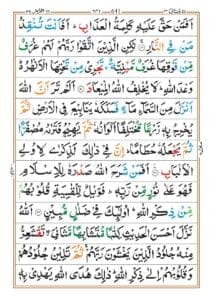 اَفَمَنْ حَقَّ عَلَيْهِ كَلِمَةُ الْعَذَابِ ؕ اَفَاَنْتَ تُنْقِذُ
مَنْ فِي النَّارِ ۚ لٰكِنِ الَّذِيْنَ اتَّقَوْا رَبَّهُمْ لَهُمْ غُرَفٌ
مِّنْ فَوْقِهَا غُرَفٌ مَّبْنِيَّةٌ ۙ تَجْرِيْ مِنْ تَحْتِهَا الْاَنْهٰرُ
وَعْدَ اللّٰهِ ؕ لَا يُخْلِفُ اللّٰهُ الْمِيْعَادَ اَلَمْ تَرَ اَنَّ اللّٰهَ
اَنْزَلَ مِنَ السَّمَآءِ مَآءً فَسَلَكَهٗ يَنَابِيْعَ فِي الْاَرْضِ ثُمَّ
يُخْرِجُ بِهٖ زَرْعًا مُّخْتَلِفًا اَلْوَانُهٗ ثُمَّ يَهِيْجُ فَتَرٰىهُ مُصْفَرًّا
ثُمَّ يَجْعَلُهٗ حُطَامًا ؕ اِنَّ فِيْ ذٰلِكَ لَذِكْرٰى لِاُولِي
الْاَلْبَابِ اَفَمَنْ شَرَحَ اللّٰهُ صَدْرَهٗ لِلْاِسْلَامِ
فَهُوَ عَلٰى نُوْرٍ مِّنْ رَّبِّهٖ ؕ فَوَيْلٌ لِّلْقٰسِيَةِ قُلُوْبُهُمْ
مِّنْ ذِكْرِ اللّٰهِ ؕ اُولٰٓئِكَ فِيْ ضَلٰلٍ مُّبِيْنٍ اَللّٰهُ
نَزَّلَ اَحْسَنَ الْحَدِيْثِ كِتٰبًا مُّتَشَابِهًا مَّثَانِيَ تَقْشَعِرُّ
مِنْهُ جُلُوْدُ الَّذِيْنَ يَخْشَوْنَ رَبَّهُمْ ۚ ثُمَّ تَلِيْنُ جُلُوْدُهُمْ
وَقُلُوْبُهُمْ اِلٰى ذِكْرِ اللّٰهِ ؕ ذٰلِكَ هُدَى اللّٰهِ يَهْدِيْ بِهٖ